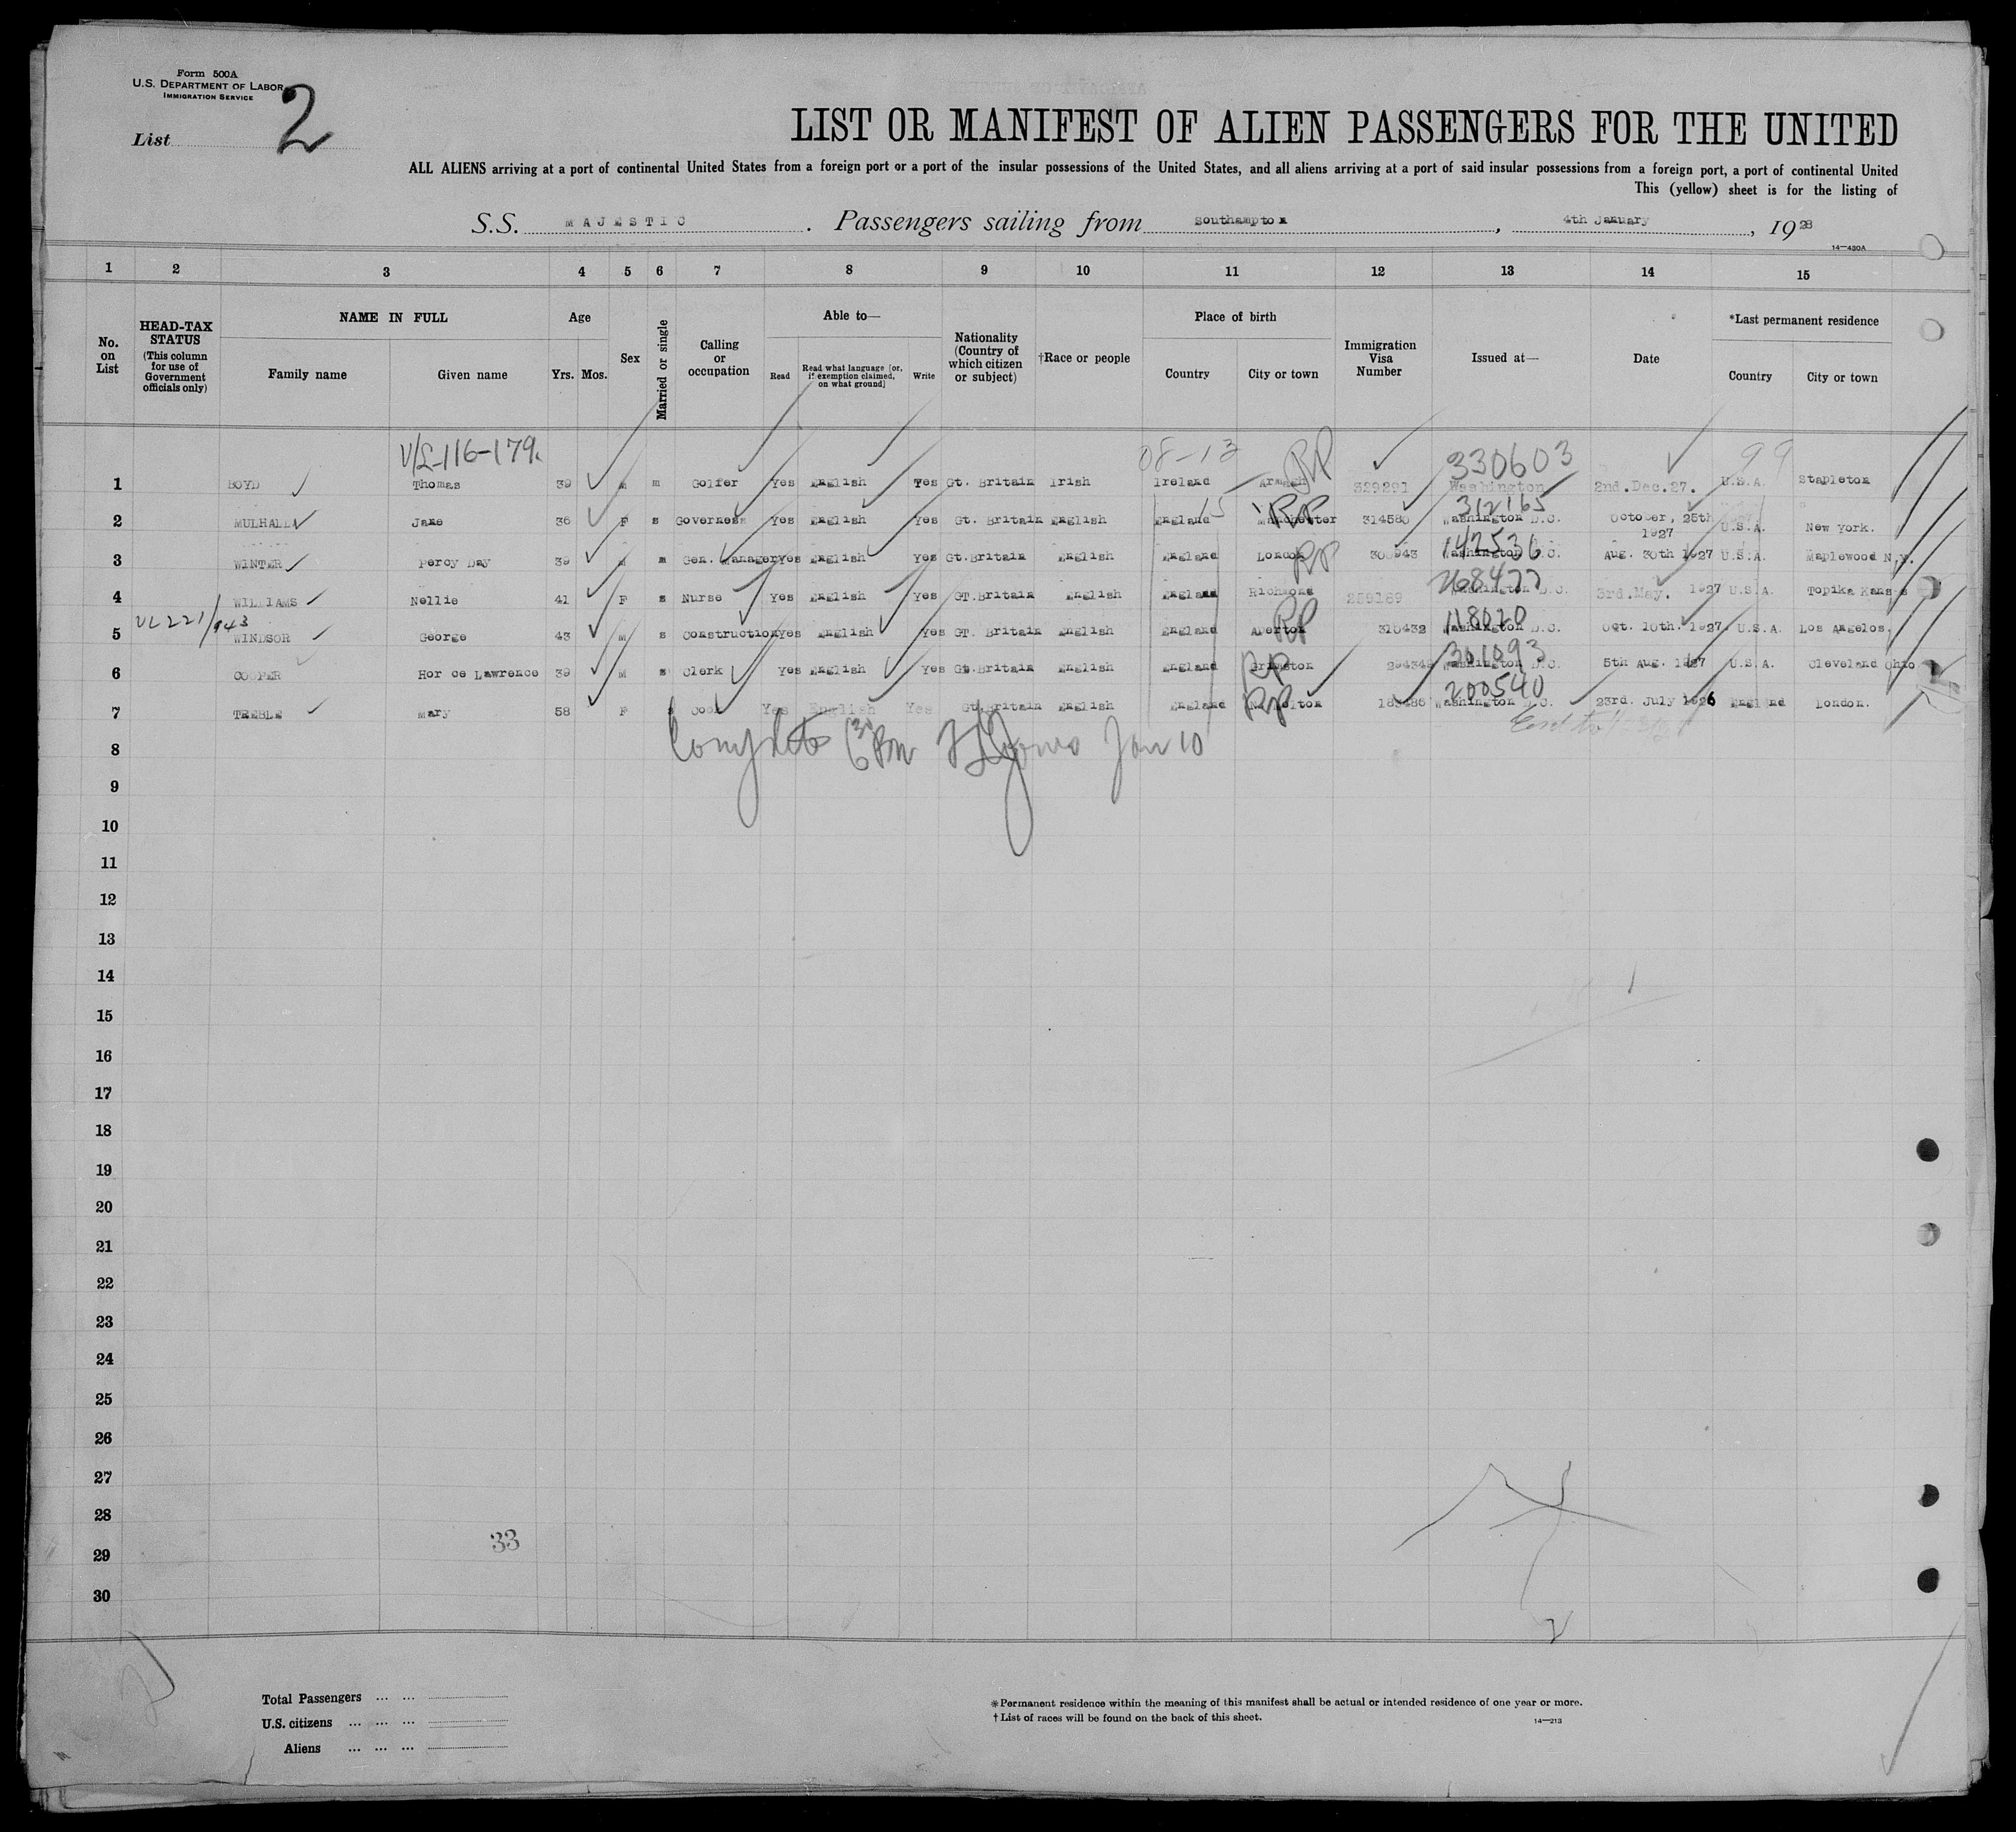 Form 500A
U.S. DEPARTMENT OF LABOR
IMMIGRATION SERVICE
List 2
LIST OR MANIFEST OF ALIEN PASSENGERS FOR THE UNITED
ALL ALIENS arriving at a port of continental United States from a foreign port or a port of the insular possessions of the United States, and all aliens arriving at a port of said insular possessions from a foreign port, a port of continental United
This (yellow) sheet is for the listing of
S.S. MAJESTIC. Passengers sailing from Southampton, 4th January, 1928
14—430A
1 2 3 4 5 6 7 8 9 10 11 12 13 14 15
No. on List
HEAD-TAX STATUS (This column for use of Government officials only)
NAME IN FULL
Family name Given name
Age
Yrs. Mos.
Sex
Married or single
Calling or occupation
Able to—
Read Read what language [or, if exemption claimed, on what ground] Write
Nationality (Country of which citizen or subject)
†Race or people
Place of birth
Country City or town
Immigration Visa Number
Issued at—
Date
*Last permanent residence
Country City or town
V/L-116-179. 08-13 RP 330603 99
1 BOYD Thomas 39 m m Golfer Yes English Yes Gt. Britain Irish Ireland Armagh 329291 Washington 2nd.Dec.27. U.S.A. Stapleton
15 RP 312165
2 MULHALL Jane 36 F s Governess Yes English Yes Gt. Britain English England Manchester 314580 Washington D.C. October, 25th 1927 U.S.A. New York.
RP 142536
3 WINTER Percy Day 39 M m Gen. Manager Yes English Yes Gt.Britain English England London Washington D.C. Aug. 30th 1927 U.S.A. Maplewood N.Y.
268477
4 WILLIAMS Nellie 41 F s Nurse Yes English Yes GT.Britain English England Richmond 259189 Washington D.C. 3rd.May. 1927 U.S.A. Topika Kansas
VL 221/943 RP 118020
5 WINDSOR George 43 M s Construction Yes English Yes GT. Britain English England 310432 Washington D.C. Oct. 10th. 1927. U.S.A. Los Angelos.
RP 301093
6 COOPER Hor ce Lawrence 39 M s Clerk Yes English Yes Gt.Britain English England Washington D.C. 5th Aug. 1927 U.S.A. Cleveland Ohio
RP 200540
7 TREBLE Mary 58 F s Cook Yes English Yes Gt.Britain English England Washington D.C. 23rd. July 1926 England London.
8 Jan 10
9
10
11
12
13
14
15
16
17
18
19
20
21
22
23
24
25
26
27
28
33
29
30
Total Passengers ... ...
U.S. citizens ... ... ...
Aliens ... ... ...
*Permanent residence within the meaning of this manifest shall be actual or intended residence of one year or more.
†List of races will be found on the back of this sheet.
14—213